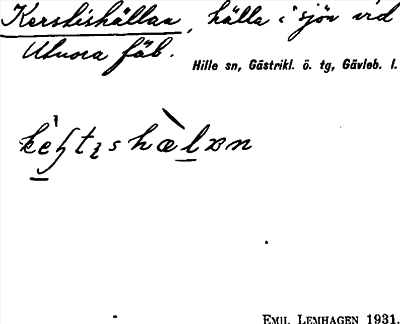 Kerstishällan, hälla i sjön vid
Utnora fäb.
Hille sn, Gästrikl. ö. tg, Gävleb. l.
EMIL LEMHAGEN 1931.